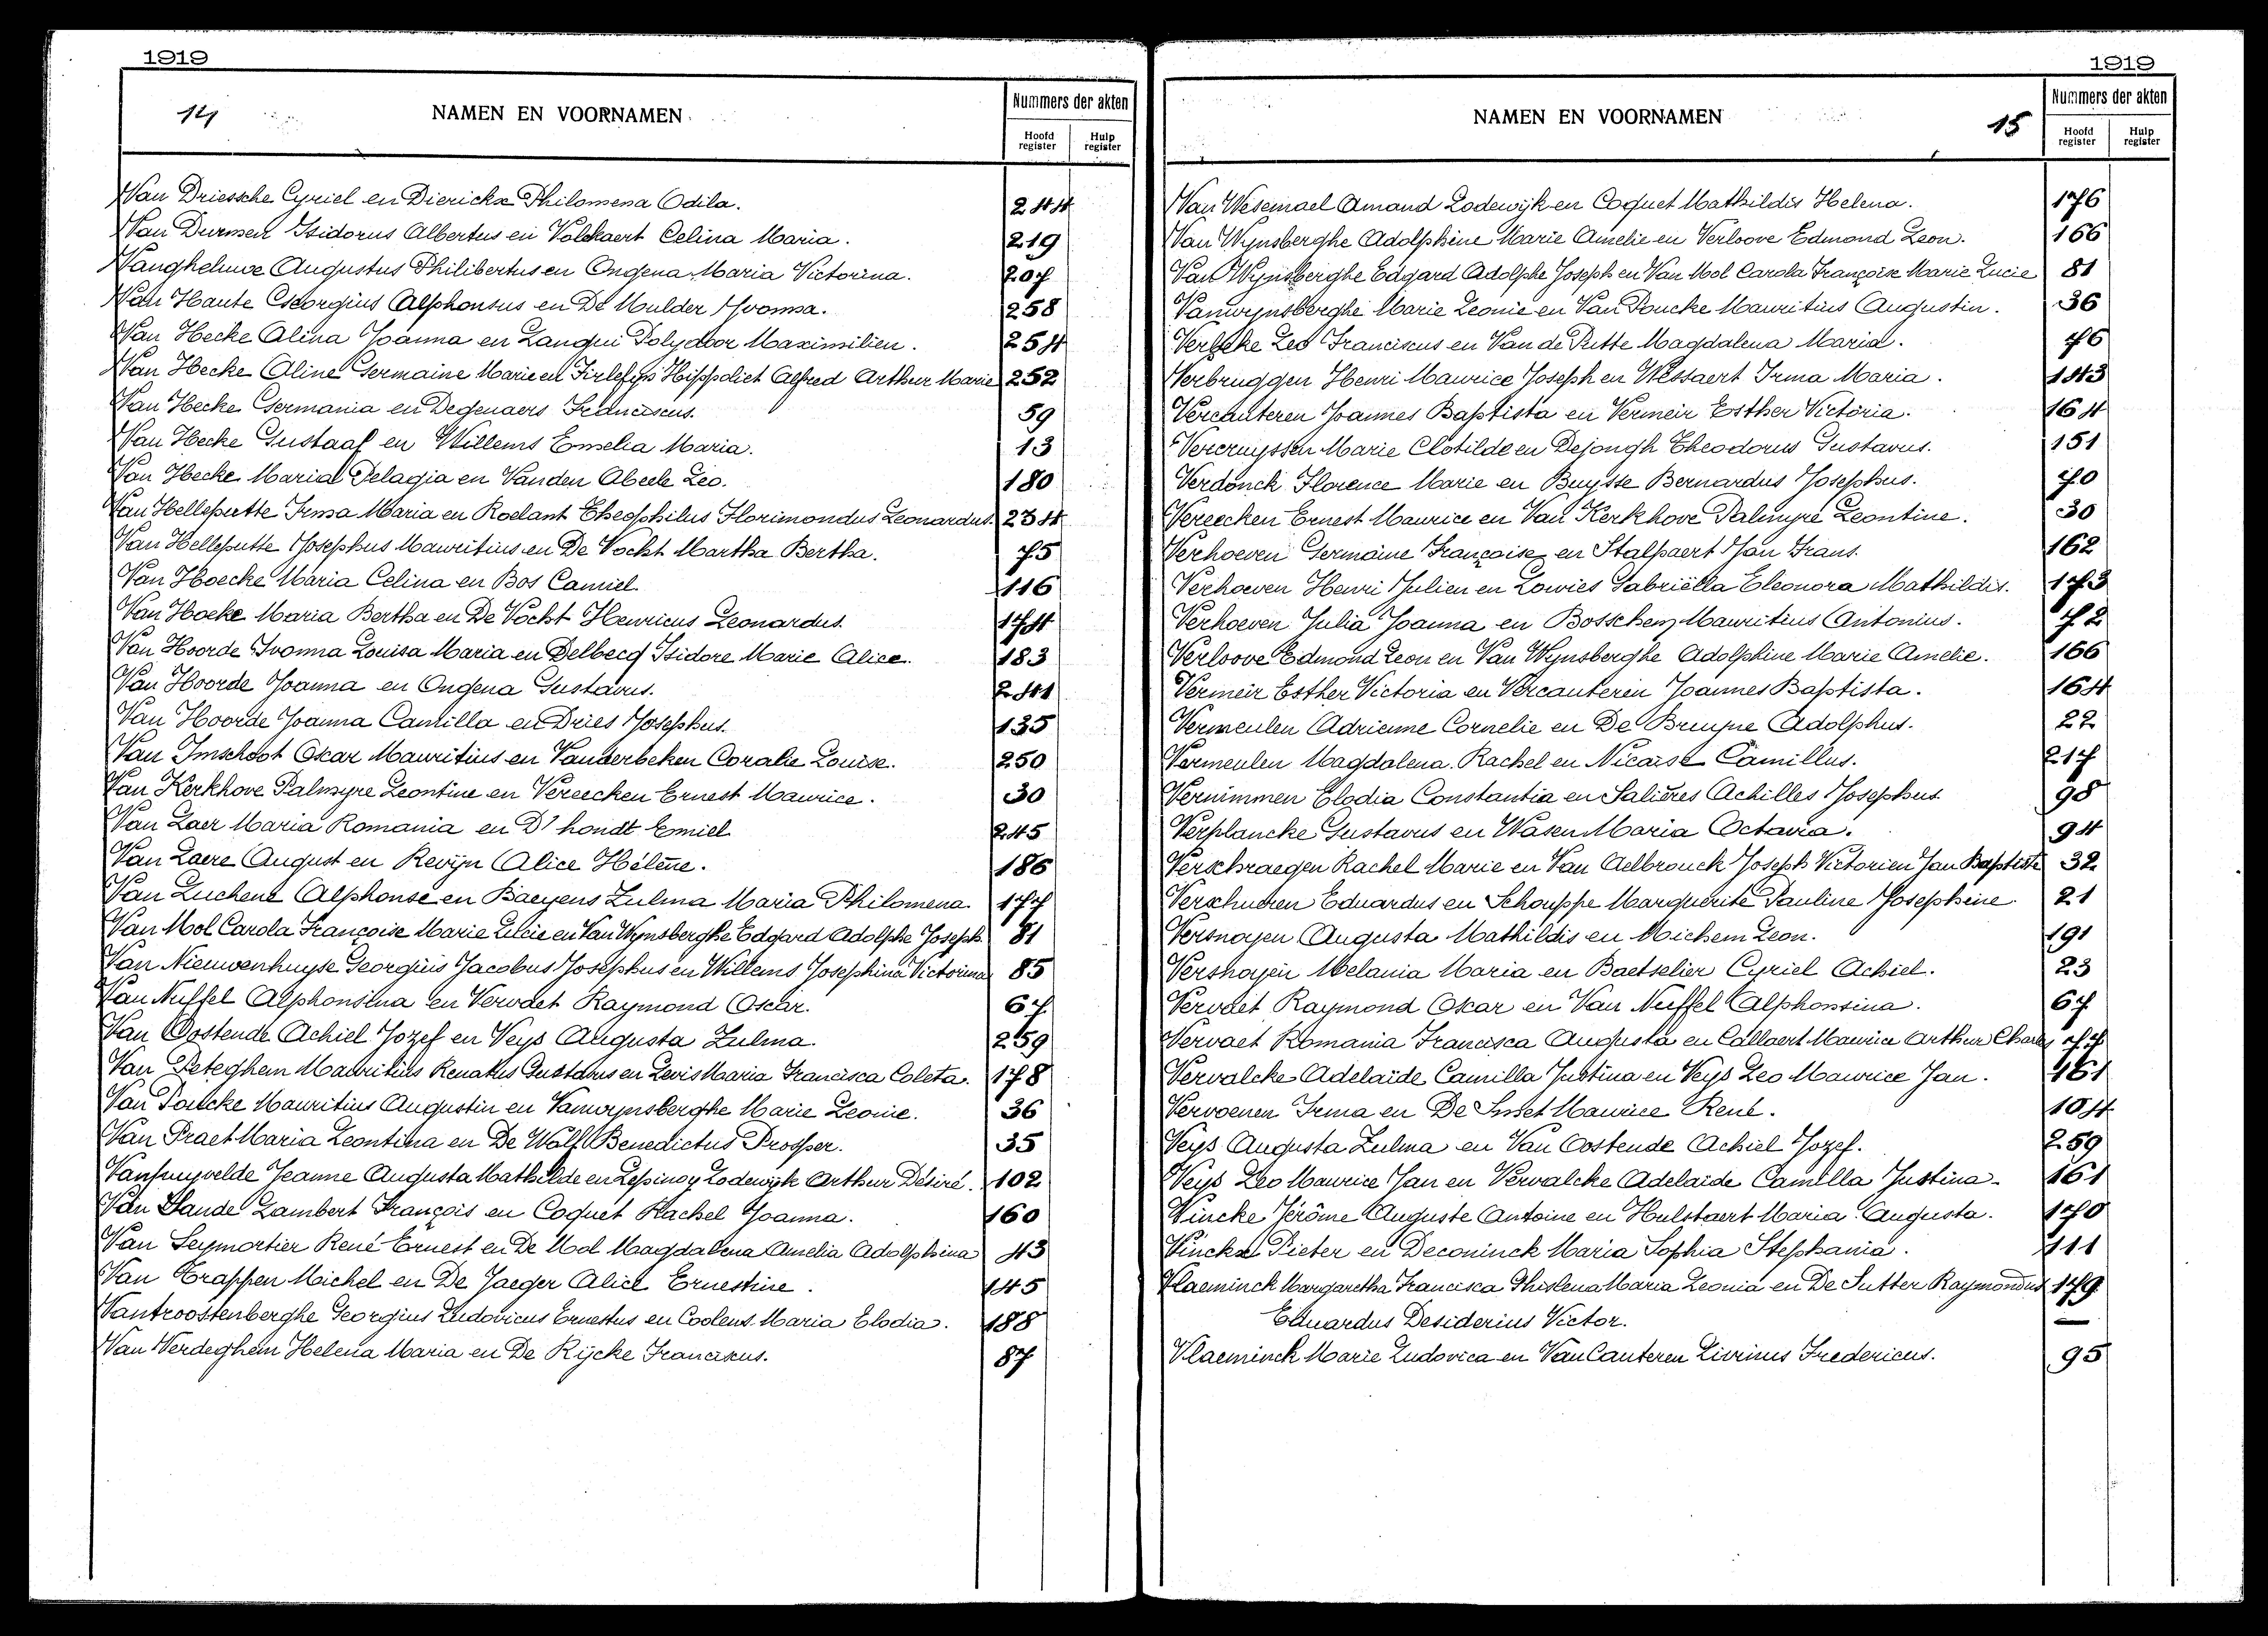 1919
14
NAMEN EN VOORNAMEN
Nummers der akten
Hoofd register
Hulp register
Van Driessche Cyriel en Dierickx Philomena Odila. 244
Van Durmen Isidorus Albertus en Volckaert Celina Maria. 219
Vangheluwe Augustus Philibertus en Ongena Maria Victorina. 207
Van Haute Georgius Alphonsus en De Mulder Yvonna. 258
Van Hecke Alina Joanna en Langui Polydoor Maximilien. 254
Van Hecke Aline Germaine Marie en Firlefyn Hippoliet Alfred Arthur Marie 252
Van Hecke Germania en Degenaers Franciscus. 59
Van Hecke Gustaaf en Willems Emelia Maria. 13
Van Hecke Maria Pelagia en Vanden Abeele Leo. 180
Van Helleputte Irma Maria en Roelant Theophilus Florimondus Leonardus. 234
Van Helleputte Josephus Mauritius en De Vocht Martha Bertha. 75
Van Hoecke Maria Celina en Bos Camiel. 116
Van Hoeke Maria Bertha en De Vocht Henricus Leonardus. 174
Van Hoorde Ivonna Louisa Maria en Delbecq Isidore Marie Alice. 183
Van Hoorde Joanna en Ongena Gustavus. 241
Van Hoorde Joanna Camilla en Dries Josephus. 135
Van Imschoot Oscar Mauritius en Vanderbeken Coralie Louise. 250
Van Kerkhove Palmyre Leontine en Vereecken Ernest Maurice. 30
Van Laer Maria Romania en D'hondt Emiel 245
Van Laere August en Revijn Alice Hélène. 186
Van Luchene Alphonse en Baeyens Zulma Maria Philomena. 177
Van Mol Carola Françoise Marie Lucie en Van Wynsberghe Edgard Adolphe Joseph. 81
Van Nieuwenhuyse Georgius Jacobus Josephus en Willems Josephina Victorina 85
Van Nuffel Alphonsina en Vervaet Raymond Oscar. 67
Van Oostende Achiel Jozef en Veys Augusta Zulma. 259
Van Peteghem Mauritius Renatus Gustavus en Levis Maria Francisca Coleta. 178
Van Poucke Mauritius Augustin en Vanwynsberghe Marie Leonie. 36
Van Praet Maria Leontina en De Wolf Benedictus Prosper. 35
Vanpuyvelde Jeanne Augusta Mathilde en Lepinoy Lodewijk Arthur Désiré. 102
Van Sande Lambert François en Coquet Rachel Joanna. 160
Van Seymortier René Ernest en De Mol Magdalena Amelia Adolphina 43
Van Trappen Michel en De Jaeger Alice Ernestine. 145
Vantroostenberghe Georgius Ludovicus Ernestus en Coolens Maria Elodia. 188
Van Verdeghem Helena Maria en De Rijcke Franciscus. 87
1919
NAMEN EN VOORNAMEN
15
Nummers der akten
Hoofd register
Hulp register
Van Wesemael Amand Lodewijk en Coquet Mathildis Helena. 176
Van Wynsberghe Adolphine Marie Amelie en Verloove Edmond Leon. 166
Van Wynsberghe Edgard Adolphe Joseph en Van Mol Carola Françoise Marie Lucie 81
Vanwynsberghe Marie Leonie en Van Poucke Mauritius Augustin. 36
Verbeke Leo Franciscus en Van de Putte Magdalena Maria. 76
Verbruggen Henri Maurice Joseph en Wissaert Irma Maria. 143
Vercauteren Joannes Baptista en Vermeir Esther Victoria. 164
Vercruyssen Marie Clotilde en Dejongh Theodorus Gustavus. 151
Verdonck Florence Marie en Buysse Bernardus Josephus. 70
Vereecken Ernest Maurice en Van Kerkhove Palmyre Leontine. 30
Verhoeven Germaine Françoise en Stalpaert Jan Frans. 162
Verhoeven Henri Julien en Lowies Gabriëlla Eleonora Mathildis. 173
Verhoeven Julia Joanna en Bosschem Mauritius Antonius. 72
Verloove Edmond Leon en Van Wynsberghe Adolphine Marie Amelie. 166
Vermeir Esther Victoria en Vercauteren Joannes Baptista. 164
Vermeulen Adrienne Cornelie en De Bruyne Adolphus. 22
Vermeulen Magdalena Rachel en Nicaise Camillus. 217
Vernimmen Elodia Constantia en Salières Achilles Josephus. 98
Verplancke Gustavus en Wasen Maria Octavia. 94
Verschraegen Rachel Marie en Van Aelbrouck Joseph Victorien Jan Baptiste 32
Verschueren Eduardus en Schouppe Marguerite Pauline Josephine. 21
Versnoyen Augusta Mathildis en Michem Leon. 191
Versnoyen Melania Maria en Baetselier Cyriel Achiel. 23
Vervaet Raymond Oscar en Van Nuffel Alphonsina. 67
Vervaet Romania Francisca Augusta en Callaert Maurice Arthur Charles 77
Vervalcke Adelaïde Camilla Justina en Veys Leo Maurice Jan. 161
Vervoenen Irma en De Smet Maurice René. 104
Veys Augusta Zulma en Van Oostende Achiel Jozef. 259
Veys Leo Maurice Jan en Vervalcke Adelaïde Camilla Justina. 161
Vincke Jérôme Auguste Antoine en Hulstaert Maria Augusta. 170
Vinckx Pieter en Deconinck Maria Sophia Stephania. 111
Vlaeminck Margaretha Francisca Ghislena Maria Leonia en De Sutter Raymondus 179
Eduardus Desiderius Victor. —
Vlaeminck Marie Ludovica en Van Cauteren Livinus Fredericus. 95